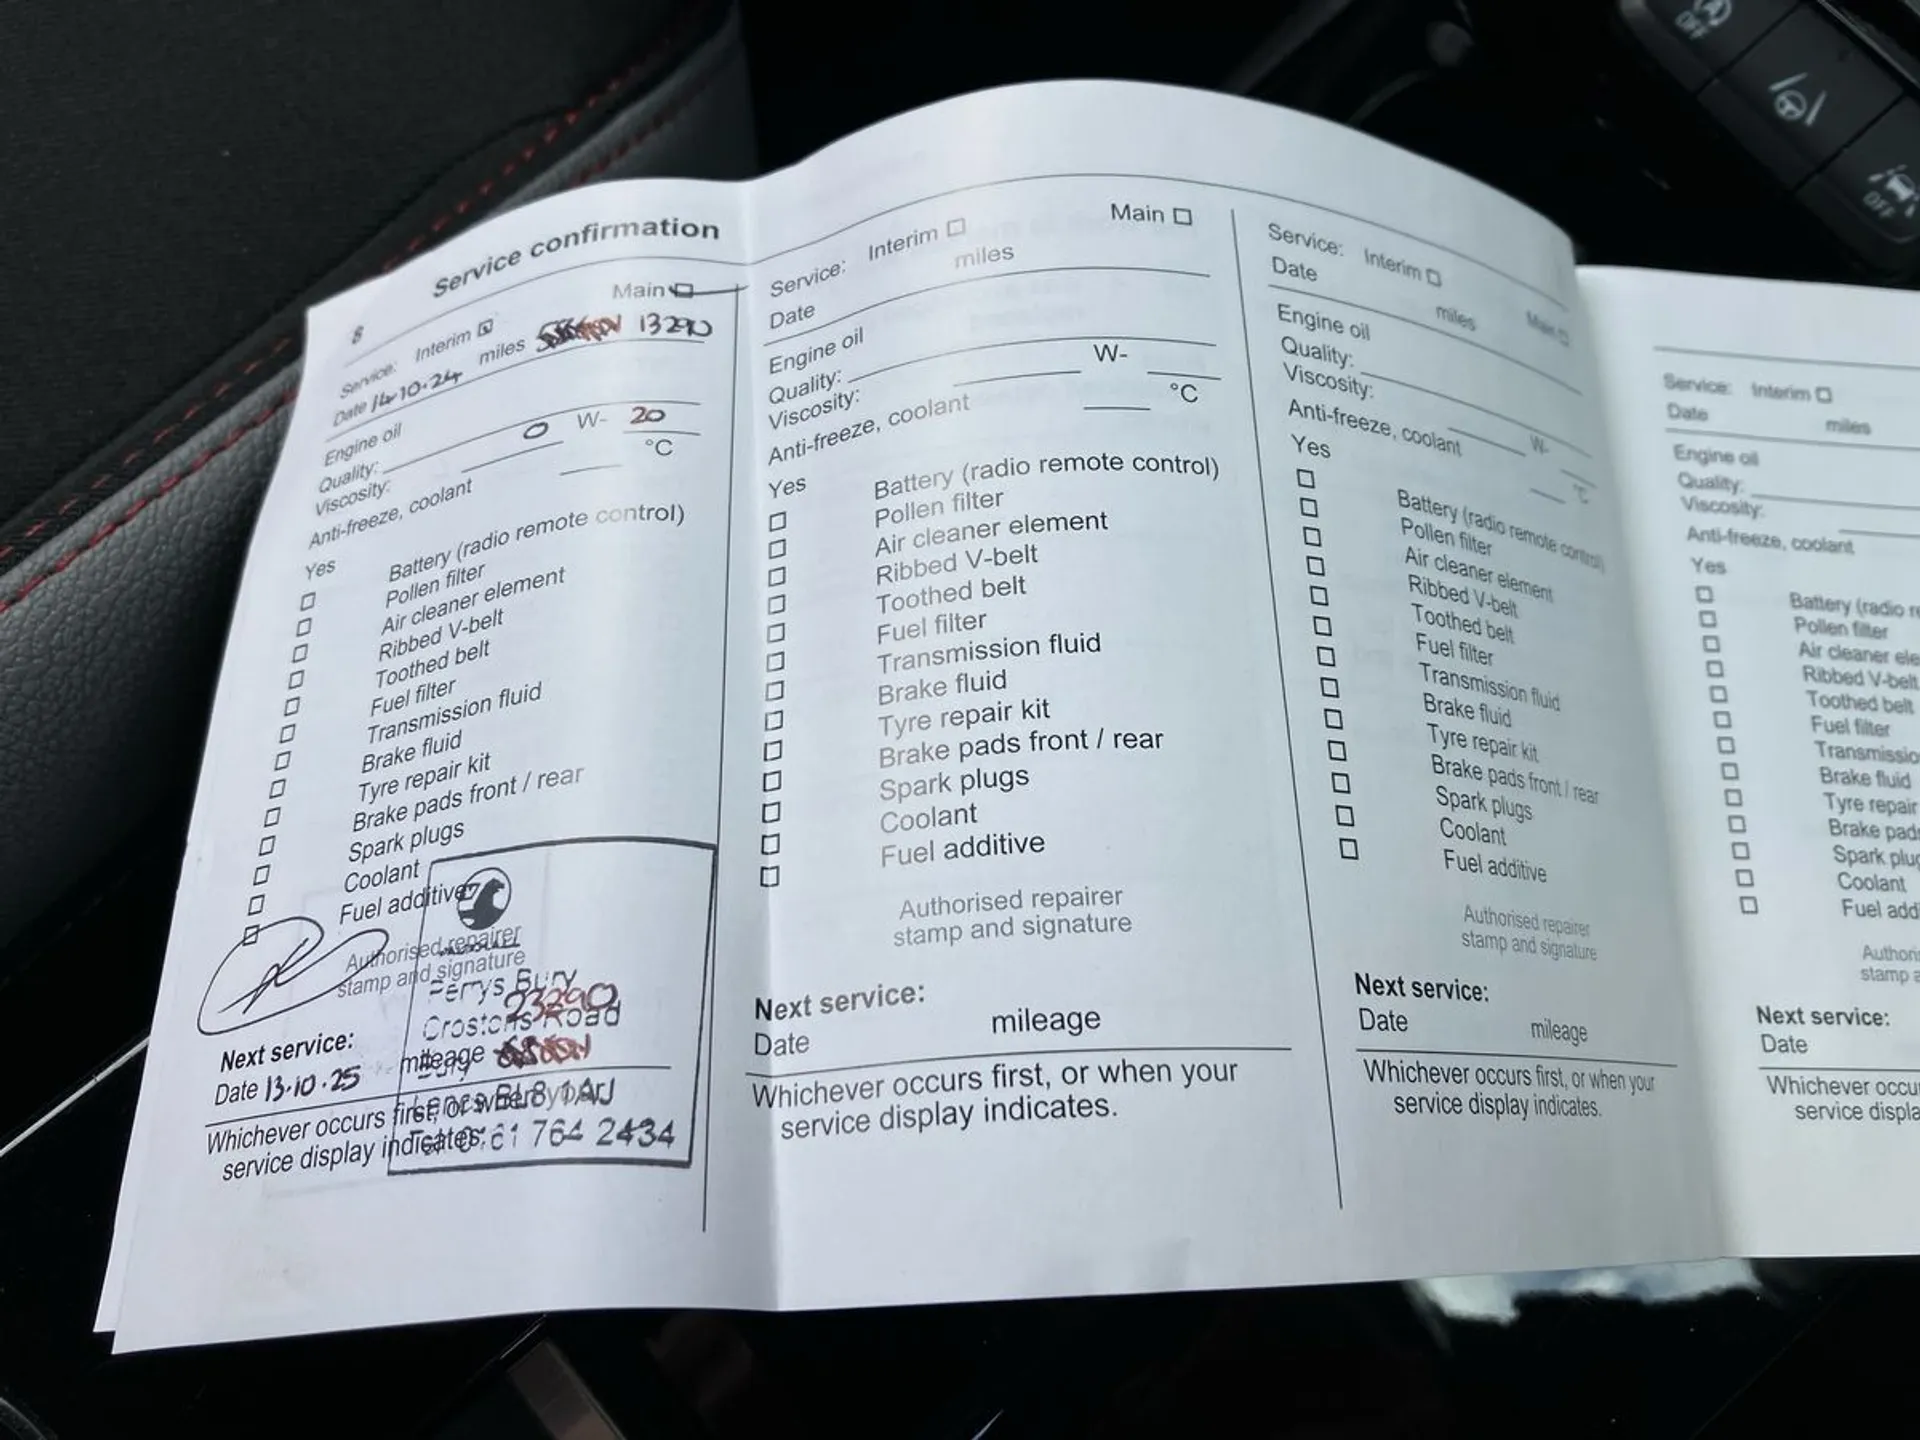 8
Service confirmation
Service: Interim Main
Date 14.10.24 miles 13290
Engine oil
Quality:
Viscosity: 0 W- 20
Anti-freeze, coolant °C
Yes
Battery (radio remote control)
Pollen filter
Air cleaner element
Ribbed V-belt
Toothed belt
Fuel filter
Transmission fluid
Brake fluid
Tyre repair kit
Brake pads front / rear
Spark plugs
Coolant
Fuel additive
Authorised repairer
stamp and signature
Perrys Bury
Crostons Road
Bury
Lancs BL8 1AJ
Tel: 0161 764 2434
Next service:
23290
Date 13.10.25 mileage
Whichever occurs first, or when your
service display indicates.
Service: Interim Main
Date miles
Engine oil
Quality:
Viscosity: W-
Anti-freeze, coolant °C
Yes
Battery (radio remote control)
Pollen filter
Air cleaner element
Ribbed V-belt
Toothed belt
Fuel filter
Transmission fluid
Brake fluid
Tyre repair kit
Brake pads front / rear
Spark plugs
Coolant
Fuel additive
Authorised repairer
stamp and signature
Next service:
Date mileage
Whichever occurs first, or when your
service display indicates.
Service: Interim Main
Date miles
Engine oil
Quality:
Viscosity: W-
Anti-freeze, coolant °C
Yes
Battery (radio remote control)
Pollen filter
Air cleaner element
Ribbed V-belt
Toothed belt
Fuel filter
Transmission fluid
Brake fluid
Tyre repair kit
Brake pads front / rear
Spark plugs
Coolant
Fuel additive
Authorised repairer
stamp and signature
Next service:
Date mileage
Whichever occurs first, or when your
service display indicates.
Service: Interim
Date miles
Engine oil
Quality:
Viscosity:
Anti-freeze, coolant
Yes
Battery (radio re
Pollen filter
Air cleaner ele
Ribbed V-belt
Toothed belt
Fuel filter
Transmissio
Brake fluid
Tyre repair
Brake pads
Spark plug
Coolant
Fuel addi
Authoris
stamp a
Next service:
Date
Whichever occu
service displa
OFF
OFF